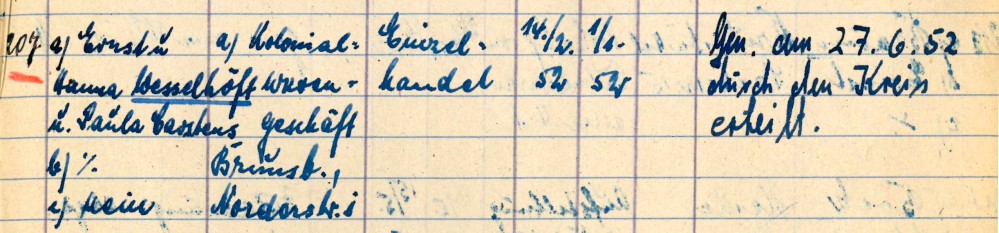 207 a) Ernst u a) Kolonial= Einzel- 14./2. 1/1. Gen. am 27.6.52
Hanna Wesselhöft waren- handel 52 52 durch den Kreis
u. Paula Carstens geschäft erteilt.
b) ./. Brunsb.,
c) nein Norderstr. 1